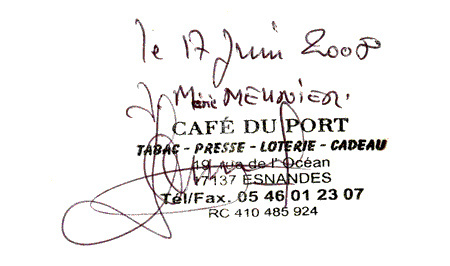 le 17 Juin 2008
Marie MEUNIER.
CAFÉ DU PORT
TABAC - PRESSE - LOTERIE - CADEAU
19 rue de l'Océan
17137 ESNANDES
Tél/Fax. 05 46 01 23 07
RC 410 485 924